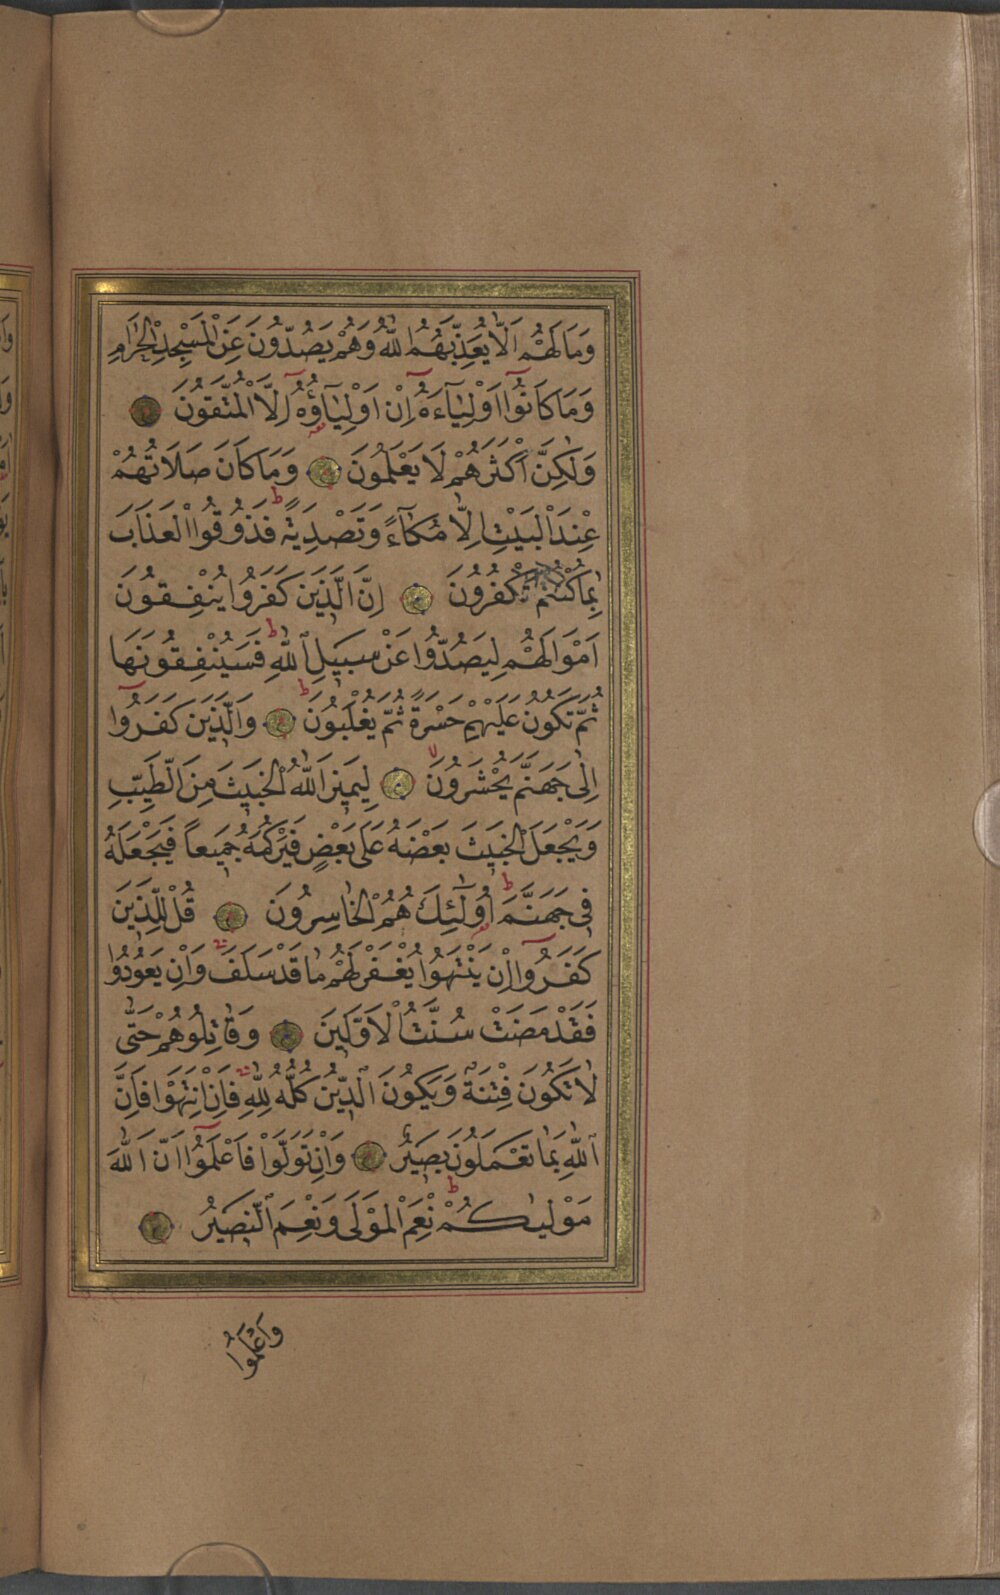 وَمَا لَهُمْ اَلَّا يُعَذِّبَهُمُ اللّٰهُ وَهُمْ يَصُدُّونَ عَنِ الْمَسْجِدِ الْحَرَامِ
وَمَا كَانُٓوا اَوْلِيَٓاءَهُ اِنْ اَوْلِيَٓاؤُ۬هُٓ اِلَّا الْمُتَّقُونَ
وَلٰكِنَّ اَكْثَرَهُمْ لَا يَعْلَمُونَ وَمَا كَانَ صَلَاتُهُمْ
عِنْدَ الْبَيْتِ اِلَّا مُكَٓاءً وَتَصْدِيَةً فَذُوقُوا الْعَذَابَ
بِمَا كُنْتُمْ تَكْفُرُونَ اِنَّ الَّذِينَ كَفَرُوا يُنْفِقُونَ
اَمْوَالَهُمْ لِيَصُدُّوا عَنْ سَبِيلِ اللّٰهِ فَسَيُنْفِقُونَهَا
ثُمَّ تَكُونُ عَلَيْهِمْ حَسْرَةً ثُمَّ يُغْلَبُونَ وَالَّذِينَ كَفَرُٓوا
اِلٰى جَهَنَّمَ يُحْشَرُونَ لِيَمِيزَ اللّٰهُ الْخَبِيثَ مِنَ الطَّيِّبِ
وَيَجْعَلَ الْخَبِيثَ بَعْضَهُ عَلٰى بَعْضٍ فَيَرْكُمَهُ جَمِيعاً فَيَجْعَلَهُ
فِي جَهَنَّمَ اُولٰٓئِكَ هُمُ الْخَاسِرُونَ قُلْ لِلَّذِينَ
كَفَرُٓوا اِنْ يَنْتَهُوا يُغْفَرْ لَهُمْ مَا قَدْ سَلَفَ وَاِنْ يَعُودُوا
فَقَدْ مَضَتْ سُنَّتُ الْاَوَّلِينَ وَقَاتِلُوهُمْ حَتّٰى
لَا تَكُونَ فِتْنَةٌ وَيَكُونَ الدِّينُ كُلُّهُ لِلّٰهِ فَاِنِ انْتَهَوْا فَاِنَّ
اللّٰهَ بِمَا تَعْمَلُونَ بَصِيرٌ وَاِنْ تَوَلَّوْا فَاعْلَمُٓوا اَنَّ اللّٰهَ
مَوْلٰيكُمْ نِعْمَ الْمَوْلٰى وَنِعْمَ النَّصِيرُ
وَاعْلَمُوا